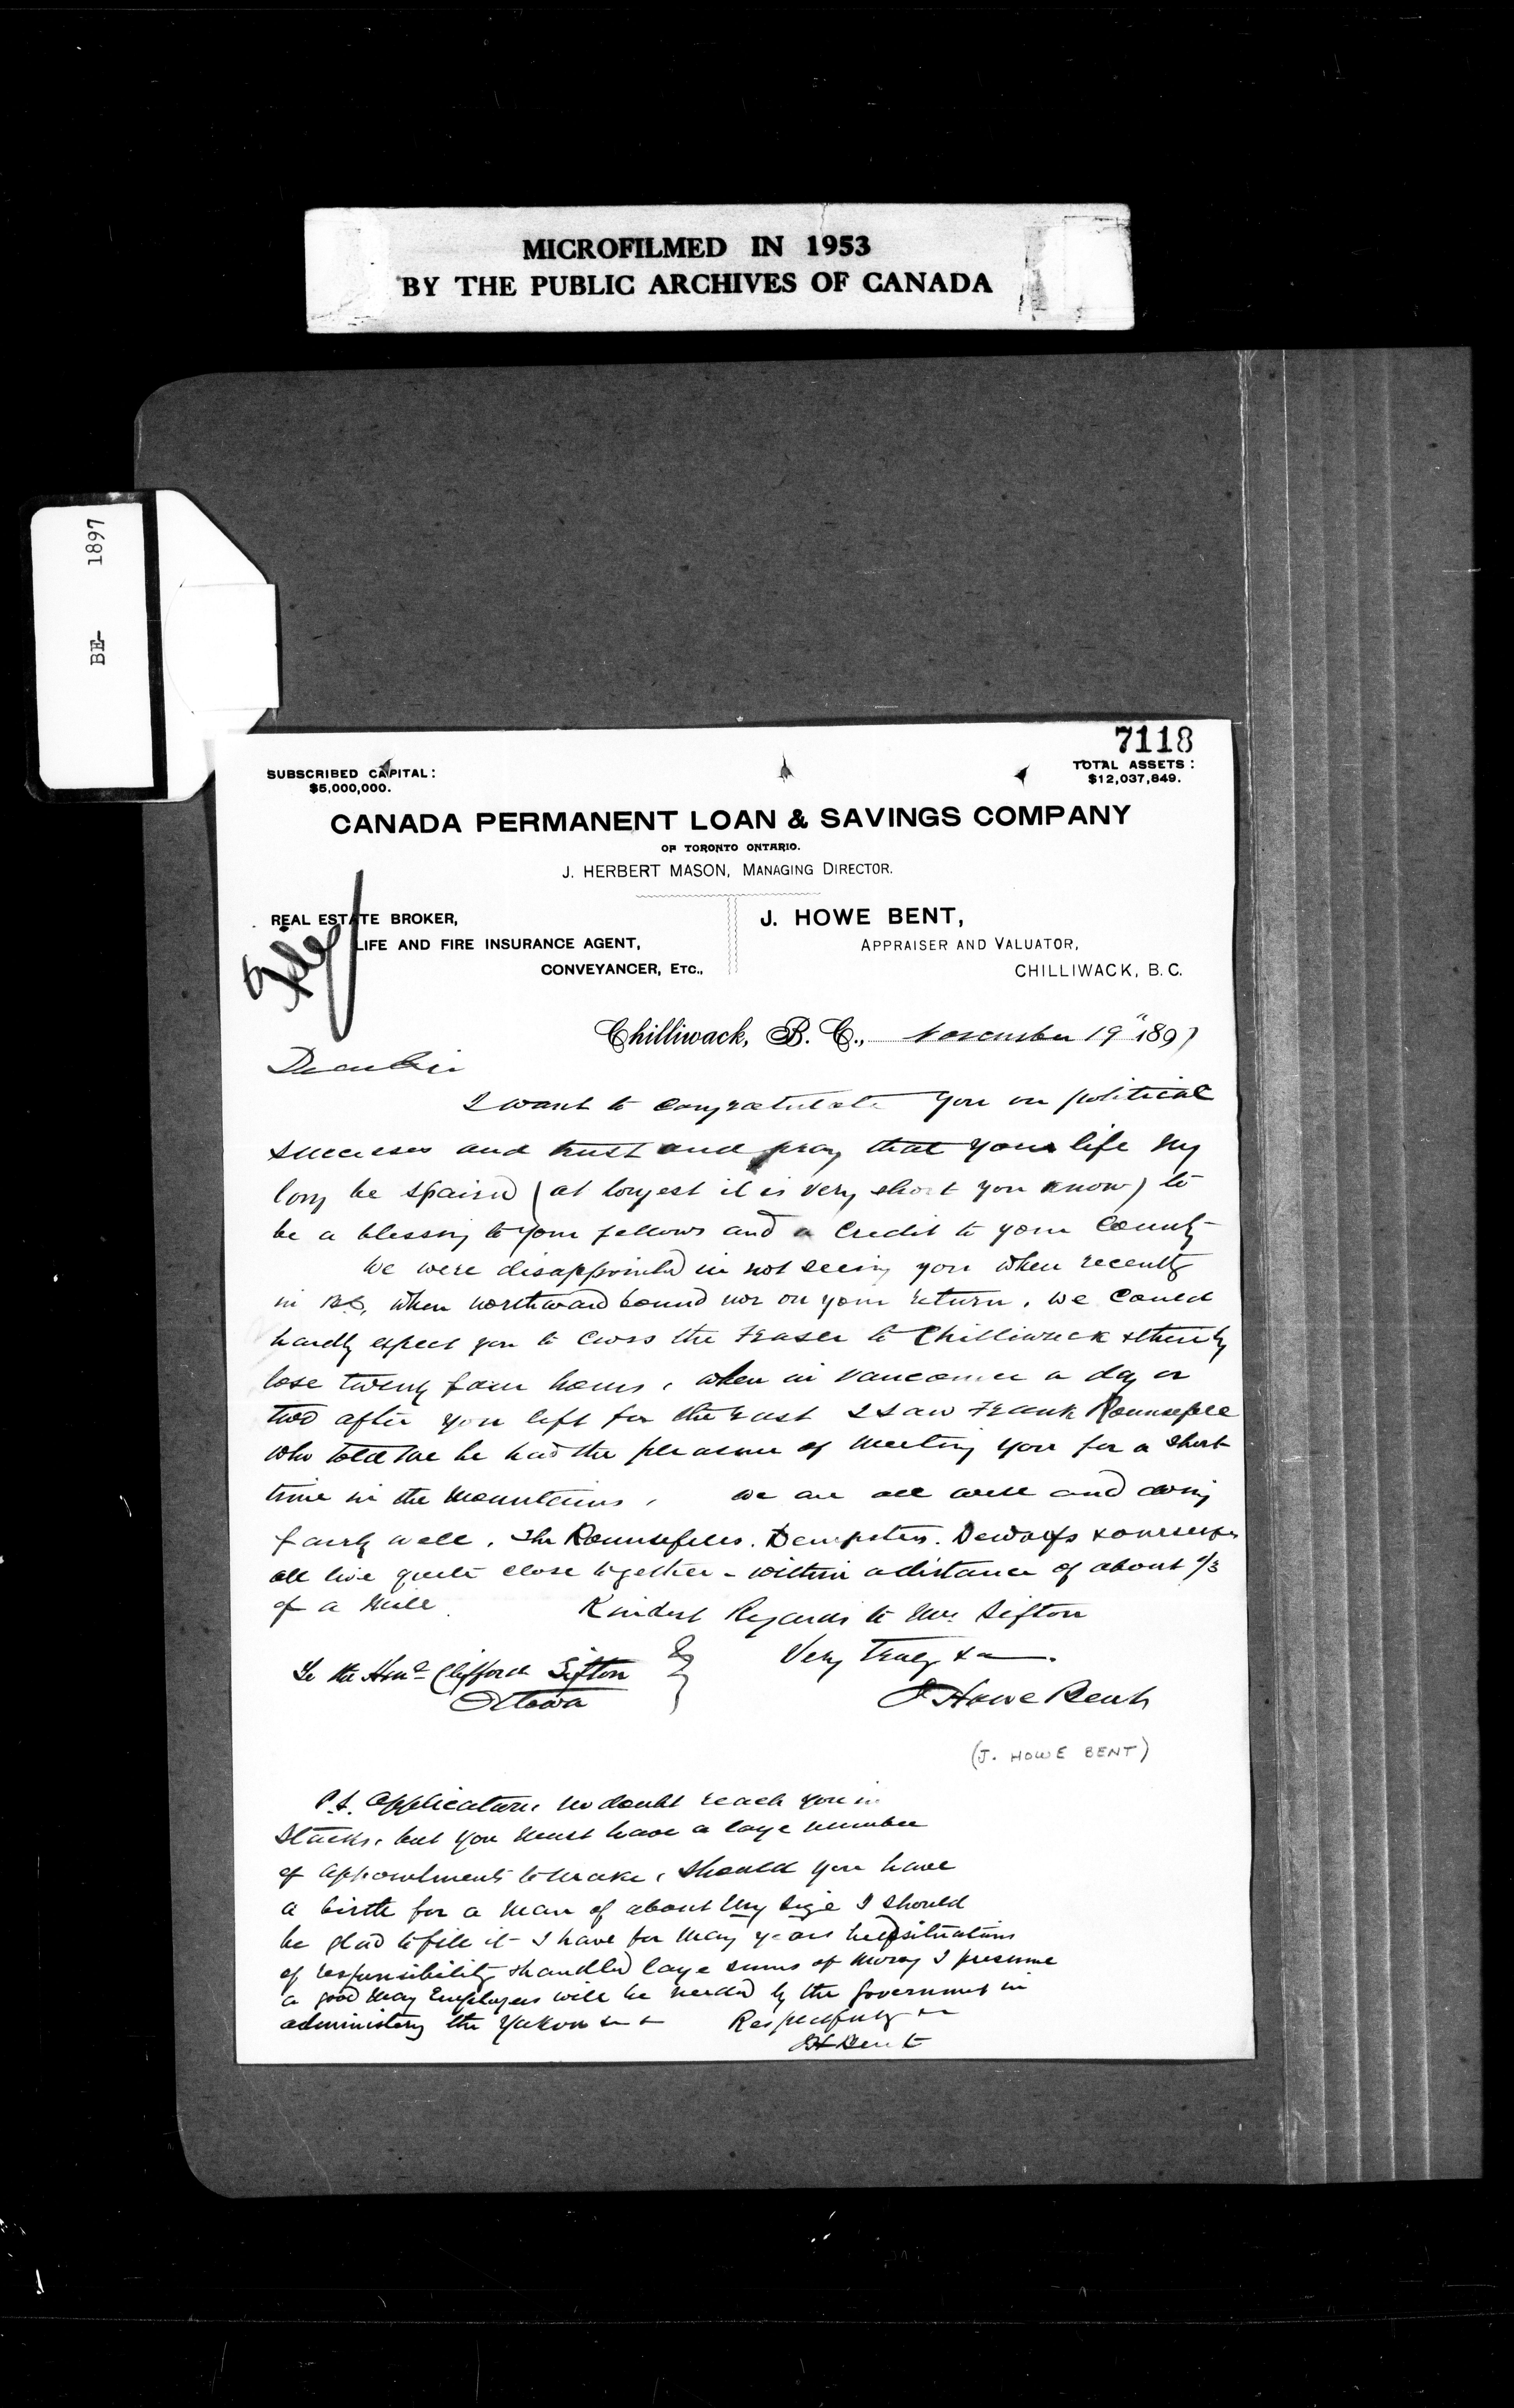 MICROFILMED IN 1953
BY THE PUBLIC ARCHIVES OF CANADA
BE- 1897
7118
SUBSCRIBED CAPITAL:
$5,000,000.
TOTAL ASSETS:
$12,037,849.
CANADA PERMANENT LOAN & SAVINGS COMPANY
OF TORONTO ONTARIO.
J. HERBERT MASON, MANAGING DIRECTOR.
REAL ESTATE BROKER,
LIFE AND FIRE INSURANCE AGENT,
CONVEYANCER, ETC.,
J. HOWE BENT,
APPRAISER AND VALUATOR,
CHILLIWACK, B. C.
File
Chilliwack, B. C., November 19" 1897
Dear Sir
I want to congratulate you on political
successes and trust and pray that your life my
long be spaired (at longest it is very short you know) to
be a blessing to your fellows and a credit to your County
We were disappointed in not seeing you when recently
in B.C., when northward bound nor on your return. We could
hardly expect you to cross the Fraser to Chilliwack & thereby
lose twenty four hours, when in Vancouver a day or
two after you left for the east I saw Frank Rounsefell
who told me he had the pleasure of meeting you for a short
time in the mountains, we are all well and doing
fairly well. The Rounsefells. Dempsters. Dewolfs & ourselves
all live quite close together - within a distance of about 1/3
of a mile. Kindest Regards to Mrs. Sifton
Very Truly &
To the Hon. Clifford Sifton
Ottawa
J Howe Bent
(J. HOWE BENT)
P.S. Applications no doubt reach you in
Stacks, but you must have a large number
of appointments to make, should you have
a birth for a man of about my size I should
be glad to fill it - I have for many years held situations
of responsibility & handled large sums of money I presume
a good many Employees will be needed by the Government in
administering the Yukon
Respectfully
JH Bent